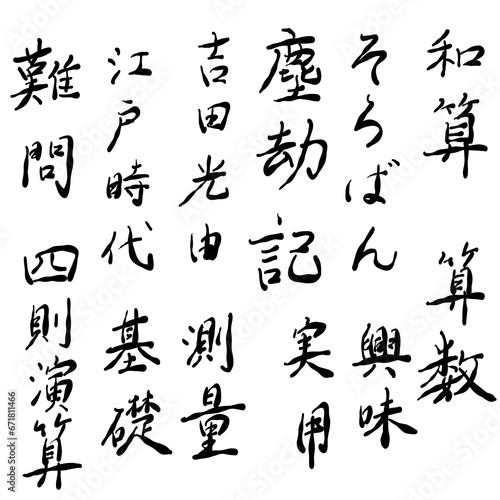 和算　算数
そろばん　興味
塵劫記　実用
吉田光由　測量
江戸時代　基礎
難問　四則演算
Adobe Stock | #671811466